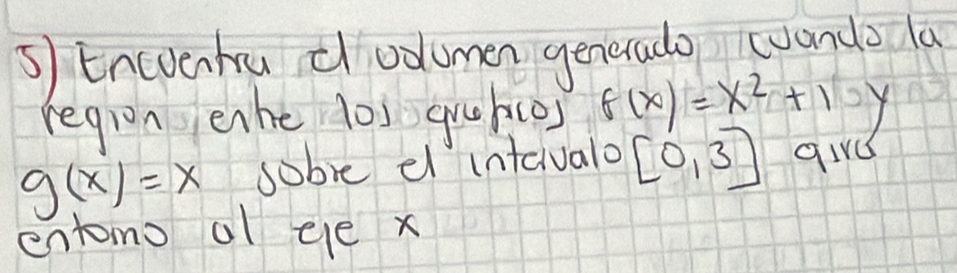 5) Encuentra el volumen generado cuando la
region entre los graficos f(x) = x² + 1 y
g(x) = x sobre el intervalo [0,3] gira
entorno al eje x